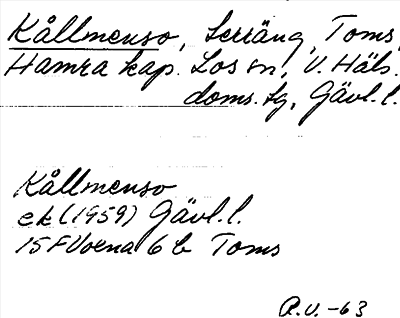 Kållmenso, Terräng, Toms,
Hamra kap. Los sn, V. Häls.
doms. tg, Gävl. l.
Kållmenso
ek (1959) Gävl. l.
15 F Voxna 6 b Toms
R.V. -63